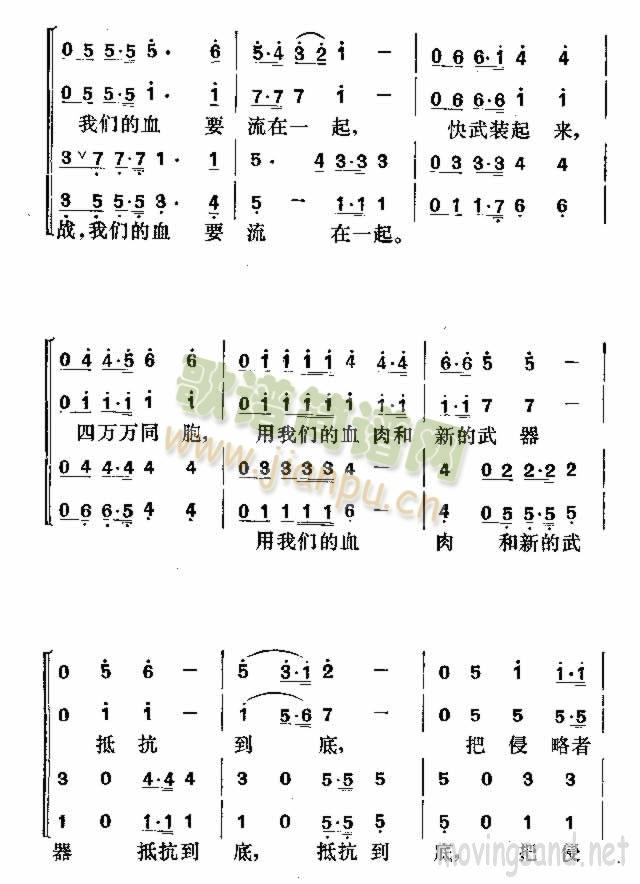 0 5 5·5 5· 6 5·4 3 2 1 — 0 6 6·1 4 4
0 5 5·5 1· 1 7·7 7 1 — 0 6 6·6 1 1
我们的血 要 流在一 起, 快武装起 来,
3 ∨ 7 7·7 1· 1 5· 4 3·3 3 0 3 3·3 4 4
3 5 5·5 3· 4 5 — 1·1 1 0 1 1·7 6 6
战,我们的血 要 流 在一起。
0 4 4·5 6 6 0 1 1 1 1 4 4·4 6·6 5 5 —
0 1 1·1 1 1 0 1 1 1 1 1 1·1 1·1 7 7 —
四万万同 胞, 用我们的血 肉和 新的武 器
0 4 4·4 4 4 0 3 3 3 3 4 — 4 0 2 2·2 2
0 6 6·5 4 4 0 1 1 1 1 6 — 4 0 5 5·5 5
用我们的血 肉 和新的武
歌谱简谱网
www.jianpu.cn
0 5 6 — 5 3·1 2 — 0 5 1 1·1
0 1 1 — 1 5·6 7 — 0 5 5 5·5
抵 抗 到 底, 把 侵 略者
3 0 4·4 4 3 0 5·5 5 5 0 3 3
1 0 1·1 1 1 0 5·5 5 5 0 1 1
器 抵抗到 底, 抵抗到 底, 把 侵
movingsand.net